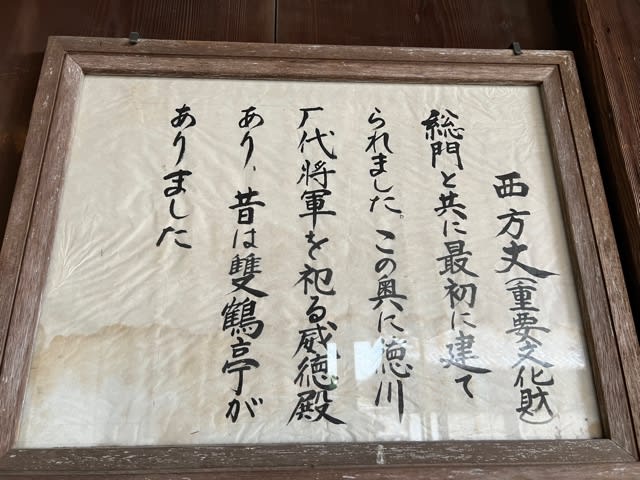 西方丈(重要文化財)
総門と共に最初に建て
られました。この奥に徳川
八代将軍を祀る威徳殿
あり、昔は雙鶴亭が
ありました